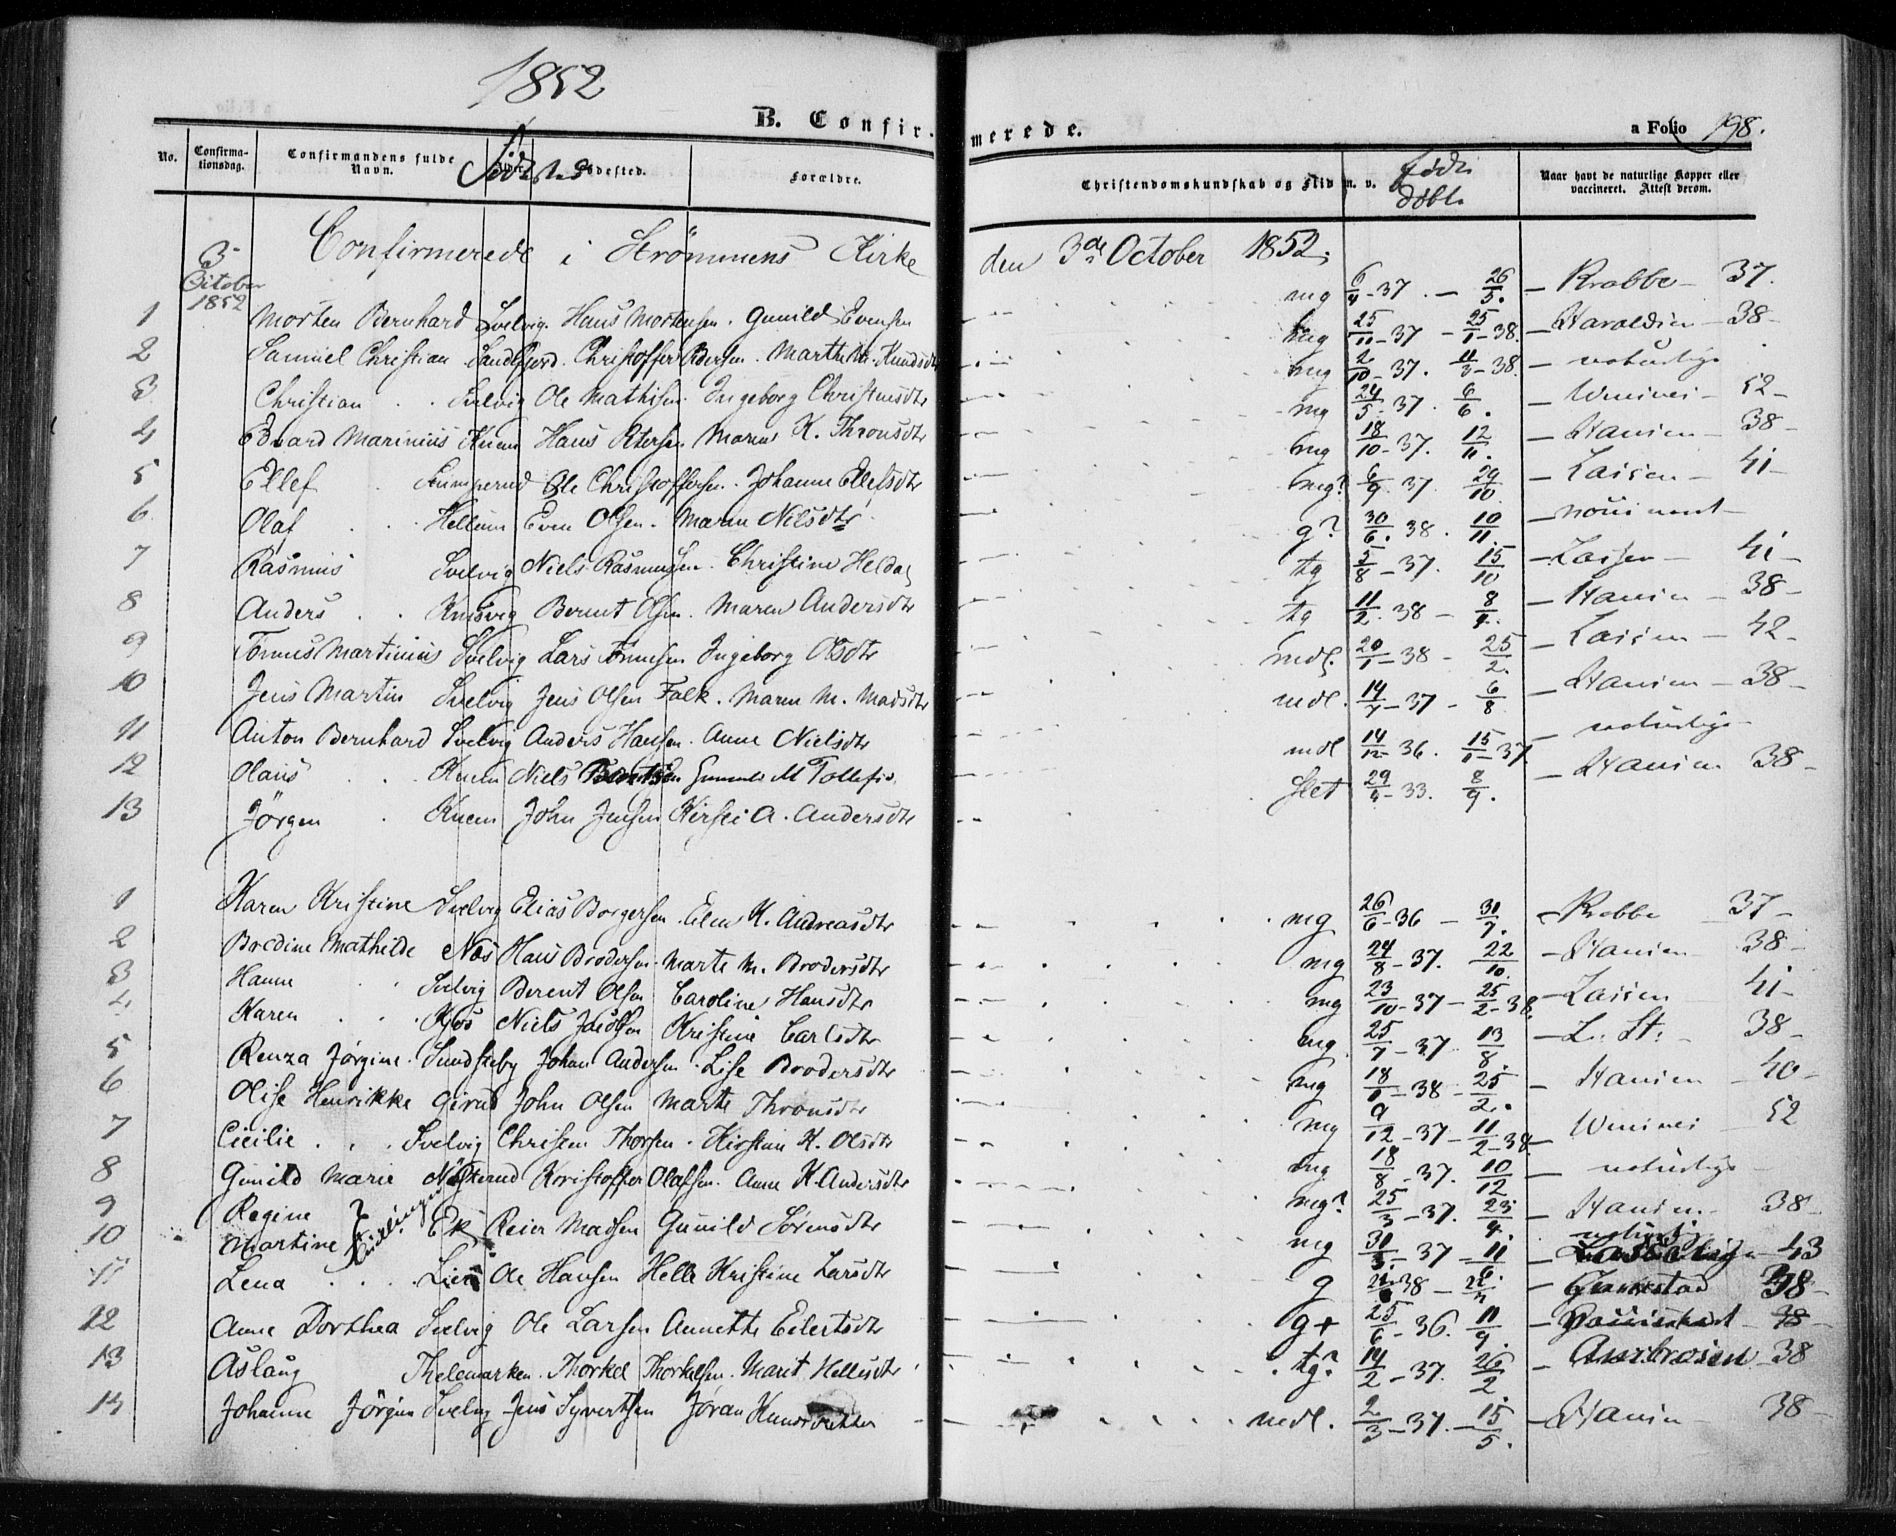 1852
B. Confirmerede.
a Folio 198.
No. Confirmationsdag. Confirmandens fulde Navn. Fødested. Forældre. Christendomskundskab og Flid m. v. født døbt Naar havt de naturlige Kopper eller vaccineret. Attest derom.
3 October 1852
Confirmerede i Strømmens Kirke den 3de October 1852.
1 Morten Bernhard Svelvig Hans Mortensen. Gunild Evensen mg 6/4-37. - 26/5. - Krabbe - 37.
2 Samuel Christian Sandefjord. Christoffer Pedersen. Marthe M. Knudsdtr mg 25/11-37 - 25/1-38. - Haraldsen - 38-
3 Christian Svelvig Ole Mathisen Ingeborg Christensdtr mg 2/10-37. 11/3-38. - naturlige
4 Edvard Marinius Knem Hans Petersen Maren K. Thronsdtr mg 24/5-37. 6/6. - 52-
5 Ellef Ole Christoffersen. Johanne Ellefsdtr mg 18/10-37. 12/11. - Hansen - 38-
6 Olaf Hellum Even Olsen. Maren Nilsdtr mg? 6/9 37 29/10. - Lassen - 41-
7 Rasmus Svelvig Niels Rasmussen. Christine Heldal g? 30/6. 38. 10/11.
8 Anders Knivsvig Bernt Olsen. Maren Andersdtr tg 5/8-37. 15/10 - Lassen - 41-
9 Tønnes Martinius Svelvig Lars Tønnesen Ingeborg Olsdtr tg 11/2. 38 - 8/4. - Hansen - 38-
10 Jens Martin Svelvig Jens Olsen Falk. Maren M. Madsdtr mdl. 20/1-38 - 25/2. - Lassen - 42-
11 Anton Bernhard Svelvig Anders Hansen. Anne Nielsdtr mdl. 14/7-37 - 6/8 - Hansen - 38-
12 Olaus Knem Niels Berntsen M Tollefs. mdl 14/12-36. 15/1-37 - naturlige
13 Jörgen Knem John Jensen Kirsti A. Andersdtr slet 29/4-33. 8/9. - Hansen 38-
1 Karen Kristine Svelvig Elias Borgersen. Elen K. Andreasdtr mg 26/6-36 - 31/7. - Krabbe - 37-
2 Bredine Mathilde Nøs Hans Brodersen. Marte M. Brodersdtr mg 24/8-37. 22/10. - Hansen - 38-
3 Hanne Svelvig Berent Olsen Caroline Hansdtr mg 23/10-37 - 25/2-38. - Lassen 41-
4 Karen Kjøs Niels Jacobsen Kristine Carlsdtr mg 25/7-37 13/8. - L. St. - 38-
5 Renza Jørgine Sundsteby Johan Andersen. Lise Brodersdtr mg 18/1-38 - 25/2. - Hansen - 40-
6 Olise Henrikke Girud John Olsen Marte Thronsdtr mg 9/12-37 - 11/2-38 52
7 Cicilie Svelvig Christen Thorsen. Kirstine K. Olsdtr mg 18/8-37. 10/12 - naturlige
8 Gunild Marie Nøsterud Kristoffer Olafsen. Anne K. Andersdtr mg? 25/3-37. 23/4. - Hansen 38-
9 Regine } Tvillinger
10 Martine Ek Reier Madsen Gunild Sørensdtr mg 31/3.-37 - 11/6 - naturlig 43
11 Lena Lien Ole Hansen Helle Kristine Larsdtr g 38 - 38-
12 Anne Dorthea Svelvig Ole Larsen Annette Eilertsdtr g+ 25/6-36. 11/9.
13 Aslaug Thelemarken. Thorkel Thorkelsen. Marit Hellesdtr tg? 14/2-37. 26/2 - Ambrosen - 38
14 Johanne Jörgine Svelvig Jens Syvertsen Jøran Knudsdatter mdl. 2/3-37. - 15/5. - Hansen 38-